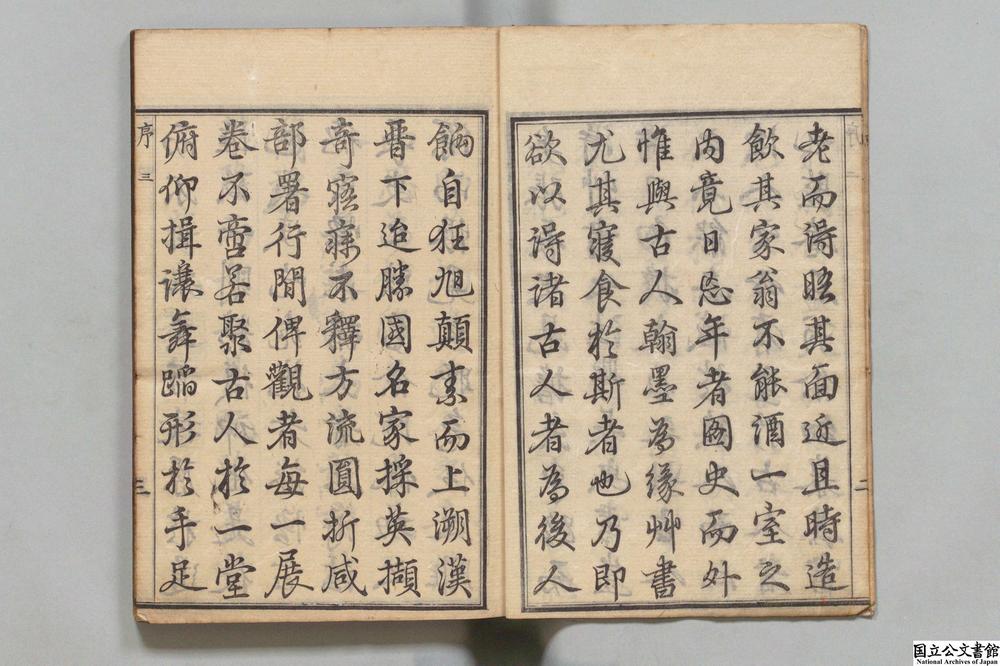 老而得晤其面近且時造
飲其家翁不能酒一室之
内竟日忘年者圖史而外
惟與古人翰墨為緣艸書
尤其寢食於斯者也乃即
欲以得諸古人者為後人
餉自狂旭顛素而上溯漢
晉下迨勝國名家採英擷
奇寤寐不釋方流圓折咸
部署行間俾觀者每一展
卷不啻若聚古人於一堂
俯仰揖讓舞蹈形於手足
序 三
三
国立公文書館
National Archives of Japan